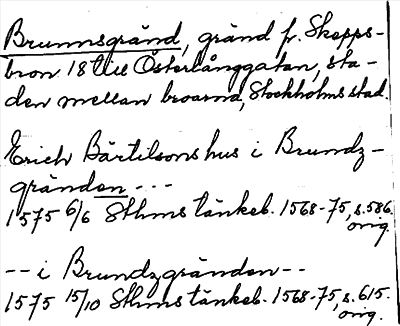 Brunnsgränd, gränd fr. Skepps-
bron 18 till Österlånggatan, sta-
den mellan broarna, Stockholms stad.
Erich Bärtilsons hus i Brundz-
gränden - - -
1575 6/6 Sthms tänkeb. 1568-75, s. 586.
orig.
-- i Brundzgränden --
1575 15/10 Sthms tänkeb. 1568-75, s. 615.
orig.